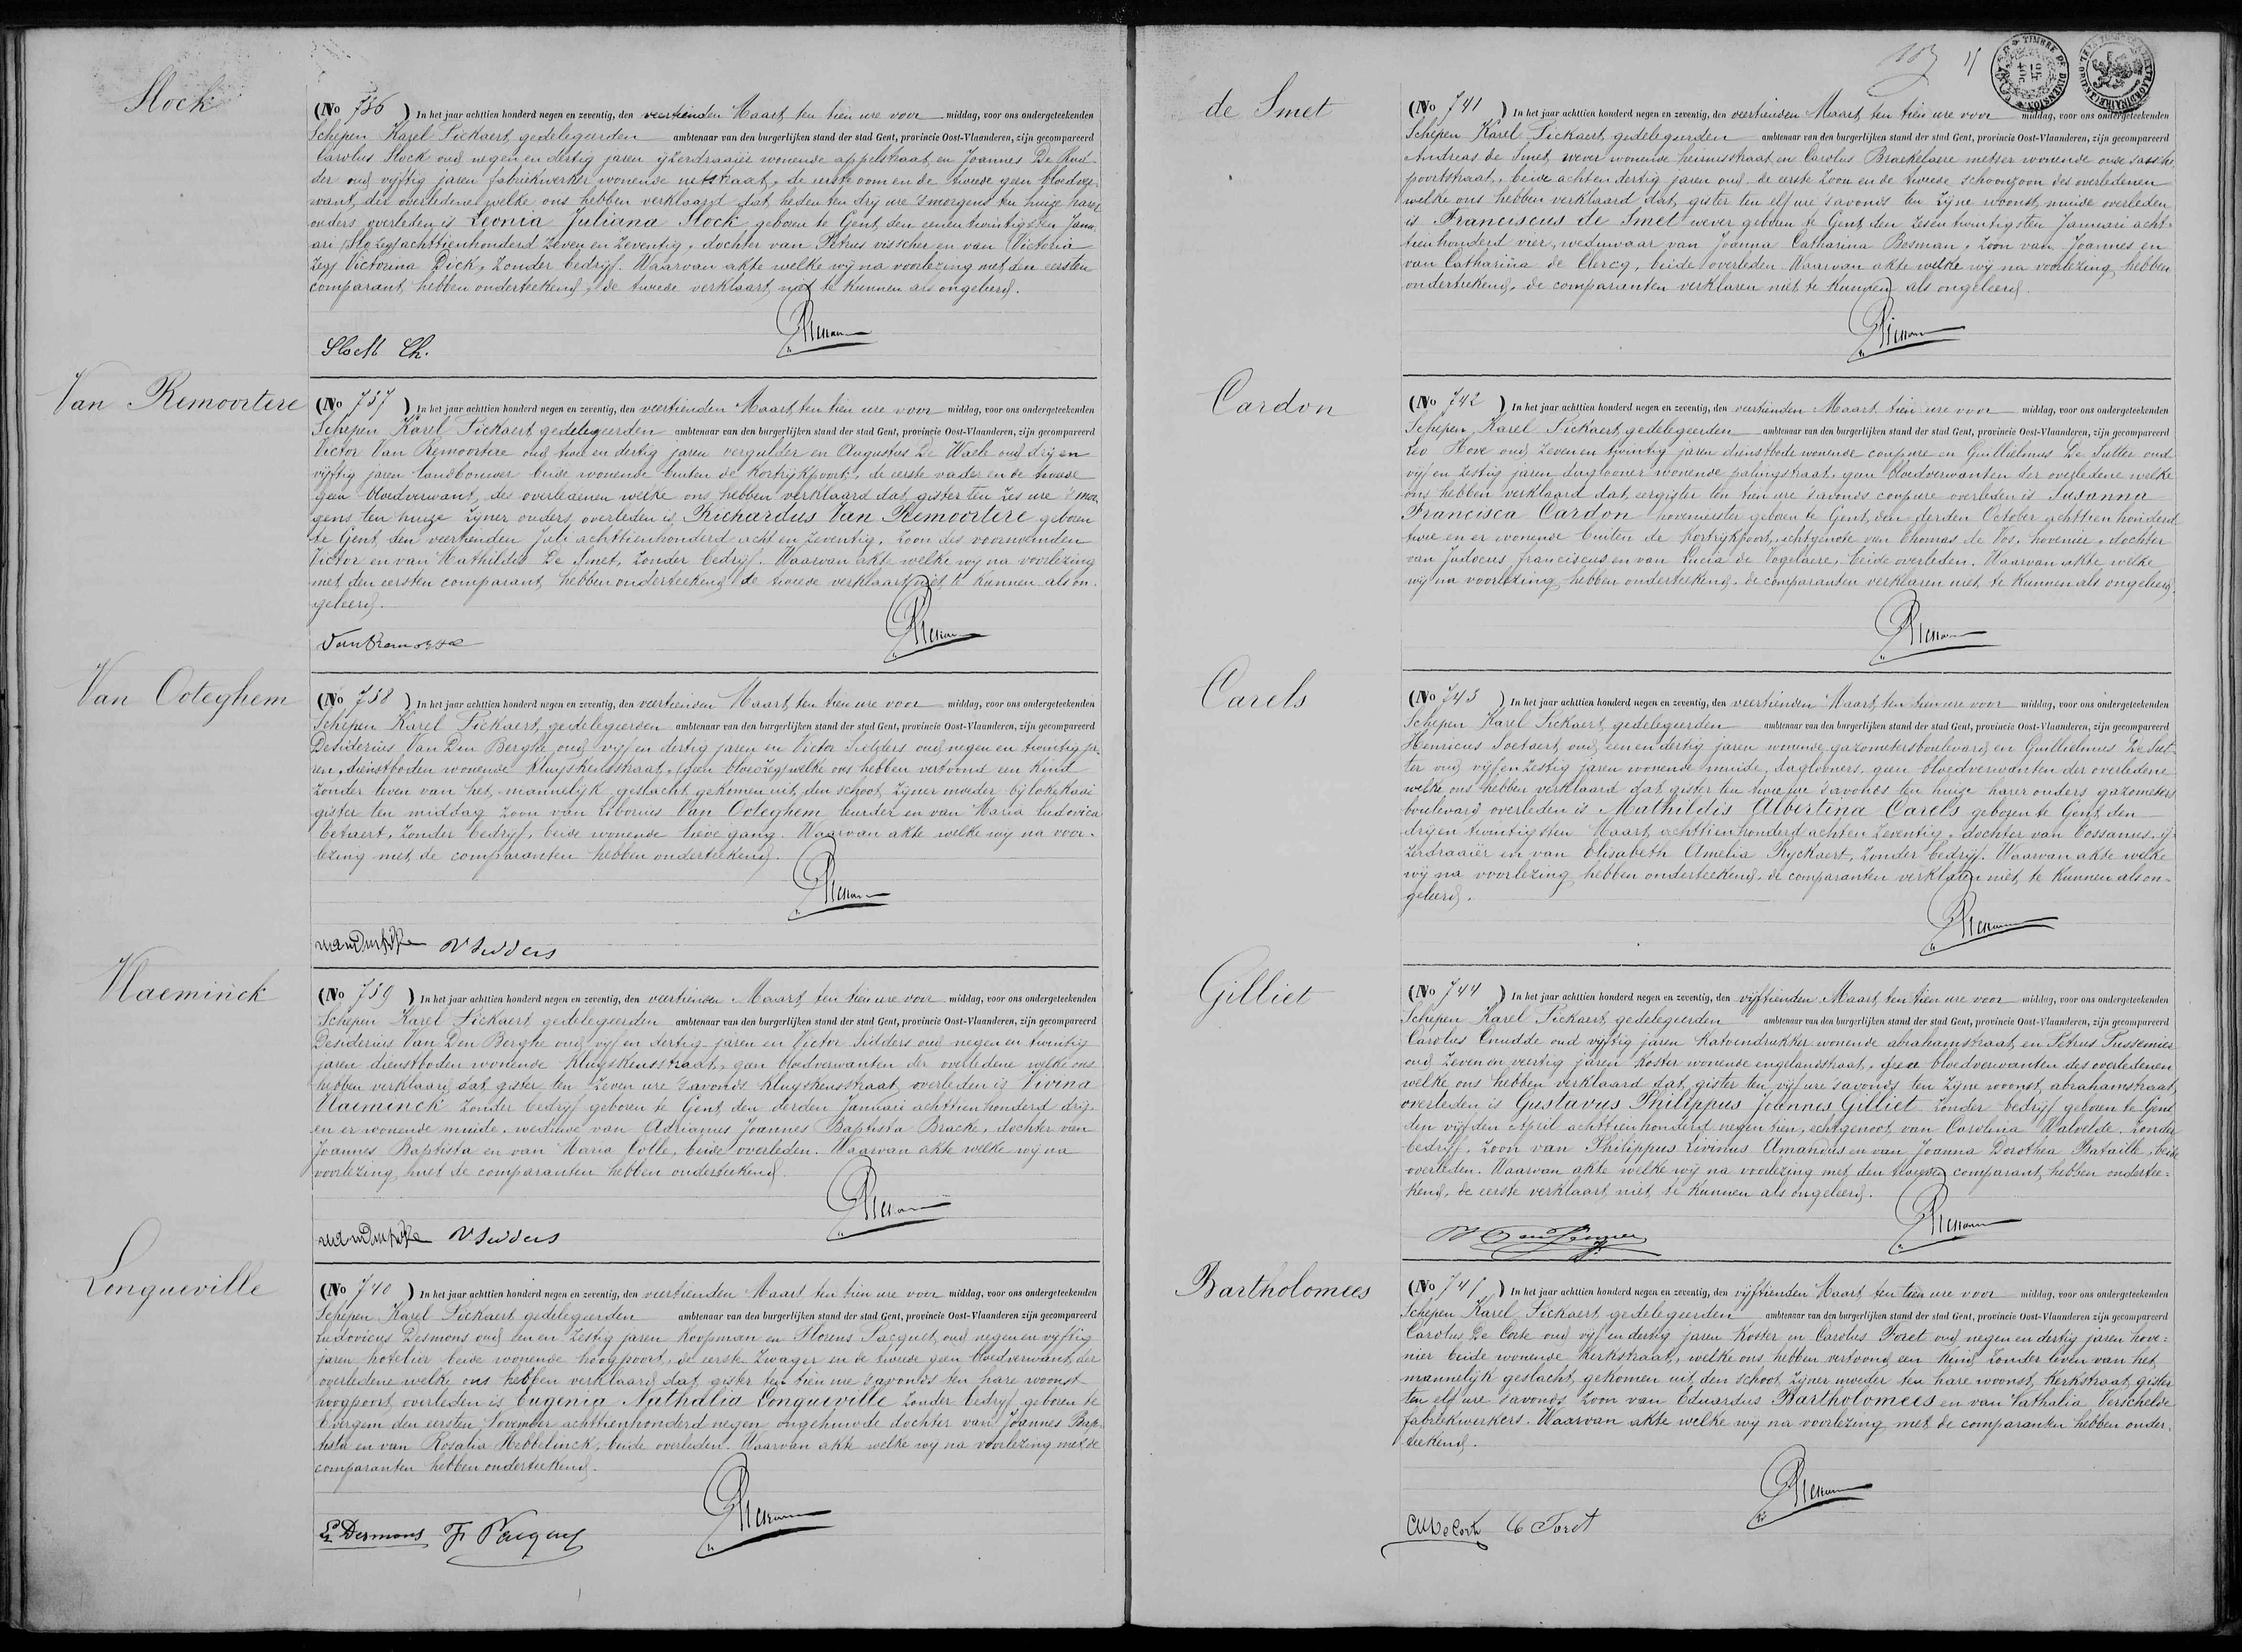 Slock
(No 736) In het jaar achttien honderd negen en zeventig, den veertienden Maart, ten tien ure voor middag, voor ons ondergeteekenden
Schepen Karel Pickaert gedelegeerden ambtenaar van den burgerlijken stand der stad Gent, provincie Oost-Vlaanderen, zijn gecompareerd
Carolus Slock oud negen en dertig jaren ijzerdraaiër wonende appelstraat, en Joannes De Rud
der oud vijftig jaren fabriekwerker wonende netstraat, de eerste oom en de tweede geen bloedver-
want, der overledene welke ons hebben verklaard dat, heden ten drij ure 's morgens ten huize harer
ouders overleden is Leonia Juliana Slock geboren te Gent, den eenen twintigsten Janu-
ari achttienhonderd zeven en zeventig, dochter van Petrus visscher en van Victoria
zegt Victorina Dick, zonder bedrijf. Waarvan akte welke wij na voorlezing met, den eersten
comparant, hebben onderteekend, de tweede verklaart, niet te kunnen als ongeleerd.
Slock Ch.
Van Remoortere
(No 737) In het jaar achttien honderd negen en zeventig, den veertienden Maart, ten tien ure voor middag, voor ons ondergeteekenden
Schepen Karel Pickaert gedelegeerden ambtenaar van den burgerlijken stand der stad Gent, provincie Oost-Vlaanderen, zijn gecompareerd
Victor Van Remoortere oud twee en dertig jaren vergulder en Augustus De Waele oud drij en
vijftig jaren landbouwer beide wonende buiten de Kortrijkpoort, de eerste vader en de tweede
geen bloedverwant, des overledenen welke ons hebben verklaard dat, gister ten zes ure 's mor-
gens ten huize zijner ouders overleden is Richardus Van Remoortere geboren
te Gent, den veertienden Juli achttienhonderd acht en zeventig, zoon des voornoemden
Victor en van Mathildis De Smet, zonder bedrijf. Waarvan akte welke wij na voorlezing
met, den eersten comparant, hebben onderteekend, de tweede verklaart niet, te kunnen als on-
geleerd.
Van Ooteghem
(No 738) In het jaar achttien honderd negen en zeventig, den veertienden Maart, ten tien ure voor middag, voor ons ondergeteekenden
Schepen Karel Pickaert, gedelegeerden ambtenaar van den burgerlijken stand der stad Gent, provincie Oost-Vlaanderen, zijn gecompareerd
Desiderius Van Den Berghe oud vijf en dertig jaren en Victor Sidders oud negen en twintig ja-
ren, dienstboden wonende Kluyskensstraat, welke ons hebben vertoond een kind
zonder leven van het, mannelijk geslacht, gekomen uit, den schoot, zijner moeder bijlokekaai
gister ten middag zoon van Liborius Van Ooteghem leurder en van Maria Ludovica
zonder bedrijf, beide wonende lieve gang. Waarvan akte welke wij na voor-
lezing met, de comparanten hebben onderteekend.
V Sidders
Vlaeminck
(No 739) In het jaar achttien honderd negen en zeventig, den veertienden Maart, ten tien ure voor middag, voor ons ondergeteekenden
Schepen Karel Pickaert gedelegeerden ambtenaar van den burgerlijken stand der stad Gent, provincie Oost-Vlaanderen, zijn gecompareerd
Desiderius Van Den Berghe oud vijf en dertig jaren en Victor Sidders oud negen en twintig
jaren dienstboden wonende Kluyskensstraat, geen bloedverwanten der overledene welke ons
hebben verklaard dat gister ten zeven ure 's avonds Kluyskensstraat, overleden is Vivina
Vlaeminck zonder bedrijf geboren te Gent, den derden Januari achttien honderd drij-
en er wonende muide, weduwe van Adrianus Joannes Baptista Bracke, dochter van
Joannes Baptista en van Maria Colle, beide overleden. Waarvan akte welke wij na
voorlezing, met de comparanten hebben onderteekend.
V Sidders
Longueville
(No 740) In het jaar achttien honderd negen en zeventig, den veertienden Maart ten tien ure voor middag, voor ons ondergeteekenden
Schepen Karel Pickaert gedelegeerden ambtenaar van den burgerlijken stand der stad Gent, provincie Oost-Vlaanderen, zijn gecompareerd
Ludovicus Desmons oud een en zestig jaren Koopman en Florens Pacquet, oud negen en vijftig
jaren hotelier beide wonende hoogpoort, de eerste zwager en de tweede geen bloedverwant, der
overledene welke ons hebben verklaard dat gister ten tien ure 's avonds ten hare woonst
hoogpoort, overleden is Eugenia Nathalia Longueville zonder bedrijf geboren te
Evergem den eersten November achttienhonderd negen ongehuwde dochter van Joannes Bap-
tista en van Rosalia Hebbelinck, beide overleden. Waarvan akte welke wij na voorlezing met de
comparanten hebben onderteekend.
L Desmons
de Smet
(No 741) In het jaar achttien honderd negen en zeventig, den veertienden Maart, ten tien ure voor middag, voor ons ondergeteekenden
Schepen Karel Pickaert gedelegeerden ambtenaar van den burgerlijken stand der stad Gent, provincie Oost-Vlaanderen, zijn gecompareerd
Andreas de Smet, wever wonende heirnisstraat en Carolus Braekelaere metser wonende oude
poortstraat, beide acht en dertig jaren oud, de eerste zoon en de tweede schoonzoon des overledenen
welke ons hebben verklaard dat, gister ten elf ure 's avonds ten zijne woonst, muide overleden
is Franciscus de Smet wever geboren te Gent, den zesen twintigsten Januari acht-
tien honderd vier, weduwaar van Joanna Catharina Bosman, zoon van Joannes en
van Catharina de Clercq, beide overleden. Waarvan akte welke wij na voorlezing, hebben
onderteekend, de comparanten verklaren niet te kunnen als ongeleerd.
Cardon
(No 742) In het jaar achttien honderd negen en zeventig, den veertienden Maart, tien ure voor middag, voor ons ondergeteekenden
Schepen Karel Pickaert, gedelegeerden ambtenaar van den burgerlijken stand der stad Gent, provincie Oost-Vlaanderen, zijn gecompareerd
Leo Hove oud zeven en twintig jaren dienstbode wonende coupure en Guillielmus De Sutter oud
vijf en zestig jaren daglooner wonende palingstraat, geen bloedverwanten der overledene welke
ons hebben verklaard dat, eergister ten tien ure 's avonds coupure overleden is Susanna
Francisca Cardon hovenierster geboren te Gent, den derden October achttien honderd
twee en er wonende buiten de Kortrijkpoort, echtgenote van Thomas de Vos, hovenier, dochter
van Judocus franciscus en van Lucia de Vogelaere, beide overleden. Waarvan akte welke
wij na voorlezing, hebben onderteekend, de comparanten verklaren niet, te kunnen als ongeleerd.
Carels
(No 743) In het jaar achttien honderd negen en zeventig, den veertienden Maart, ten tien ure voor middag, voor ons ondergeteekenden
Schepen Karel Pickaert gedelegeerden ambtenaar van den burgerlijken stand der stad Gent, provincie Oost-Vlaanderen, zijn gecompareerd
Henricus Soetaert, oud een en dertig jaren wonende gazometersboulevard en Guillielmus De Sut-
ter oud vijf en zestig jaren wonende muide, daglooners, geen bloedverwanten der overledene
welke ons hebben verklaard dat gister ten twee ure 's avonds ten huize harer ouders gazometers
boulevard overleden is Mathildis Albertina Carels geboren te Gent, den
drij en twintigsten Maart, achttienhonderd acht en zeventig, dochter van Cossanus, ij-
zerdraaiër en van Elisabeth Amelia Ryckaert, zonder bedrijf. Waarvan akte welke
wij na voorlezing, hebben onderteekend, de comparanten verklaren niet, te kunnen als on-
geleerd.
Gilliet
(No 744) In het jaar achttien honderd negen en zeventig, den vijftienden Maart, ten tien ure voor middag, voor ons ondergeteekenden
Schepen Karel Pickaert, gedelegeerden ambtenaar van den burgerlijken stand der stad Gent, provincie Oost-Vlaanderen, zijn gecompareerd
Carolus Cnudde oud vijftig jaren Katoendrukker wonende abrahamstraat, en Petrus
oud zeven en veertig jaren koster wonende engelandstraat, geen bloedverwanten des overledenen
welke ons hebben verklaard dat, gister ten vijf ure 's avonds ten zijne woonst, abrahamstraat,
overleden is Gustavus Philippus Joannes Gilliet zonder bedrijf geboren te Gent,
den vijfden April achttienhonderd negentien, echtgenoot, van Carolina Walvelde zonder
bedrijf, zoon van Philippus Livinus Amandus en van Joanna Dorothea Bataille, beide
overleden. Waarvan akte welke wij na voorlezing met, den tweeden comparant, hebben ondertee-
kend, de eerste verklaart niet, te kunnen als ongeleerd.
Bartholomees
(No 745) In het jaar achttien honderd negen en zeventig, den vijftienden Maart ten tien ure voor middag, voor ons ondergeteekenden
Schepen Karel Pickaert, gedelegeerden ambtenaar van den burgerlijken stand der stad Gent, provincie Oost-Vlaanderen zijn gecompareerd
Carolus De Corte oud vijf en dertig jaren koster en Carolus Foret oud negen en dertig jaren hove-
nier beide wonende Kerkstraat, welke ons hebben vertoond een kind zonder leven van het
mannelijk geslacht, gekomen uit, den schoot zijner moeder ten hare woonst, Kerkstraat, gister
ten elf ure 's avonds zoon van Eduardus Bartholomees en van Nathalia Verschelde
fabriekwerkers. Waarvan akte welke wij na voorlezing met de comparanten hebben onder-
teekend.
C Foret